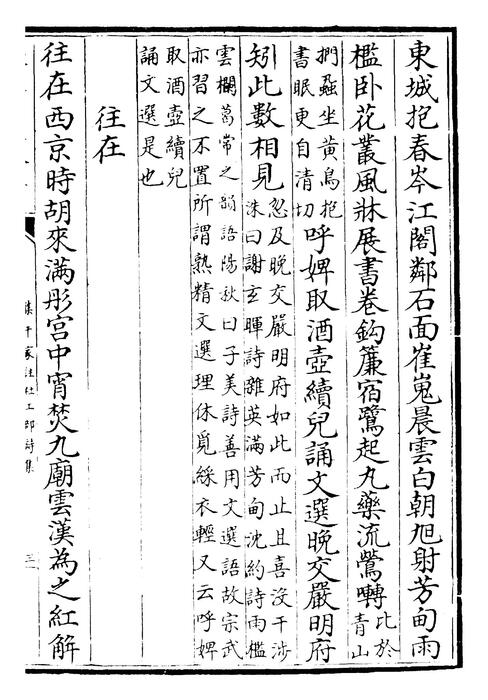 東城抱春岑江閣鄰石面崔嵬晨雲白朝旭射芳甸雨
檻卧花叢風牀展書卷鈎簾宿鷺起丸藥流鶯囀比於
青山
捫蝨坐黄鳥抱
書眠更自清切
呼婢取酒壺續兒誦文選晚交嚴明府
矧此數相見
忽及晚交嚴明府如此而止且喜沒干涉
洙曰謝玄暉詩雜英滿芳甸沈約詩雨檻
雲欄葛常之韻語陽秋曰子美詩善用文選語故宗武
亦習之不置所謂熟精文選理休覓綵衣輕又云呼婢
取酒壺續兒
誦文選是也
往在
往在西京時胡來滿彤宫中宵焚九廟雲漢為之紅解
集千家註杜工部詩集
三